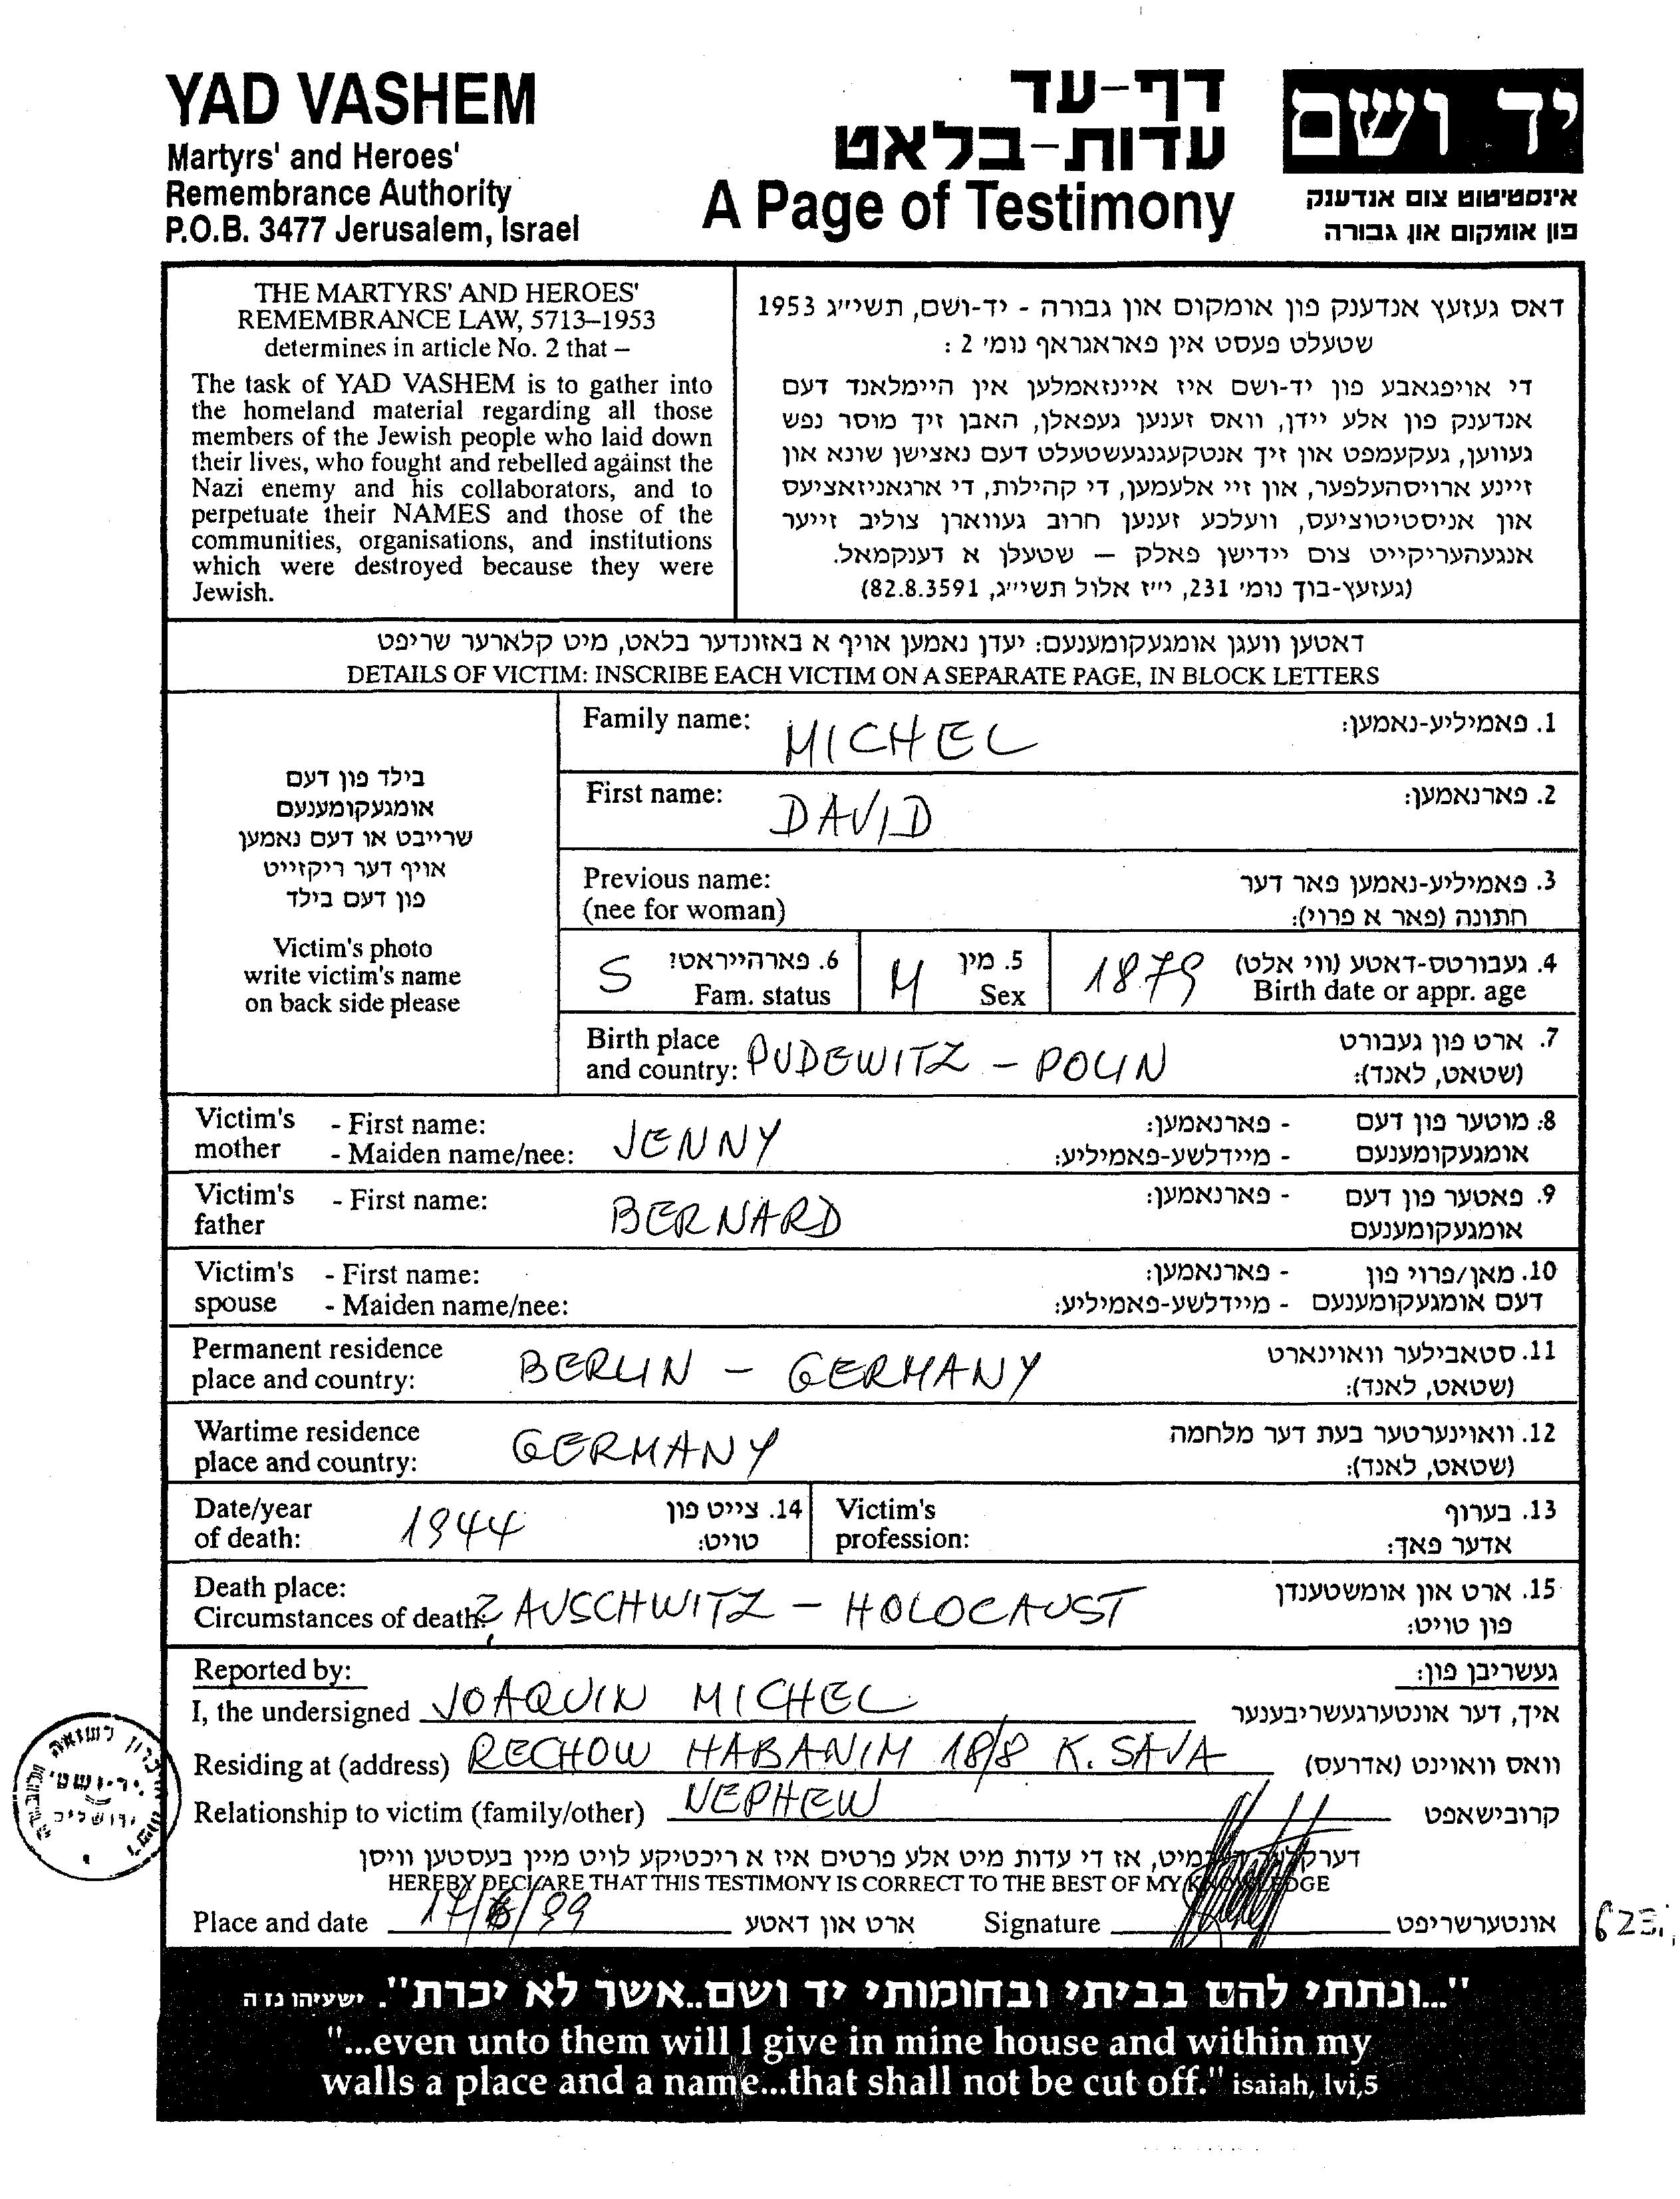 YAD VASHEM
Martyrs' and Heroes'
Remembrance Authority
P.O.B. 3477 Jerusalem, Israel
דף-עד
עדות-בלאט
A Page of Testimony
יד ושם
אינסטיטוט צום אנדענק
פון אומקום און גבורה
THE MARTYRS' AND HEROES'
REMEMBRANCE LAW, 5713–1953
determines in article No. 2 that –
The task of YAD VASHEM is to gather into
the homeland material regarding all those
members of the Jewish people who laid down
their lives, who fought and rebelled against the
Nazi enemy and his collaborators, and to
perpetuate their NAMES and those of the
communities, organisations, and institutions
which were destroyed because they were
Jewish.
דאס געזעץ אנדענק פון אומקום און גבורה - יד-ושם, תשי״ג 1953
שטעלט פעסט אין פאראגראף נומ׳ 2 :
די אויפגאבע פון יד-ושם איז איינזאמלען אין היימלאנד דעם
אנדענק פון אלע יידן, וואס זענען געפאלן, האבן זיך מוסר נפש
געווען, געקעמפט און זיך אנטקעגנגעשטעלט דעם נאצישן שונא און
זיינע ארויסהעלפער, און זיי אלעמען, די קהילות, די ארגאניזאציעס
און אניסטיטוציעס, וועלכע זענען חרוב געווארן צוליב זייער
אנגעהעריקייט צום יידישן פאלק – שטעלן א דענקמאל.
(געזעץ-בוך נומ׳ 231, י״ז אלול תשי״ג, 82.8.3591)
דאטען וועגן אומגעקומענעם: יעדן נאמען אויף א באזונדער בלאט, מיט קלארער שריפט
DETAILS OF VICTIM: INSCRIBE EACH VICTIM ON A SEPARATE PAGE, IN BLOCK LETTERS
בילד פון דעם
אומגעקומענעם
שרייבט או דעם נאמען
אויף דער ריקזייט
פון דעם בילד
Victim's photo
write victim's name
on back side please
Family name: MICHEL 1. פאמיליע-נאמען:
First name: DAVID 2. פארנאמען:
Previous name: 3. פאמיליע-נאמען פאר דער
(nee for woman) חתונה (פאר א פרוי):
S 6. פארהייראט? M 5. מין 1879 4. געבורטס-דאטע (ווי אלט)
Fam. status Sex Birth date or appr. age
Birth place 7. ארט פון געבורט
and country: PUDEWITZ - POLIN (שטאט, לאנד):
Victim's - First name: JENNY - פארנאמען: 8. מוטער פון דעם
mother - Maiden name/nee: - מיידלשע-פאמיליע: אומגעקומענעם
Victim's - First name: BERNARD - פארנאמען: 9. פאטער פון דעם
father אומגעקומענעם
Victim's - First name: - פארנאמען: 10. מאן/פרוי פון
spouse - Maiden name/nee: - מיידלשע-פאמיליע: דעם אומגעקומענעם
Permanent residence 11. סטאבילער וואוינארט
place and country: BERLIN - GERMANY (שטאט, לאנד):
Wartime residence 12. וואוינערטער בעת דער מלחמה
place and country: GERMANY (שטאט, לאנד):
Date/year 1944 14. צייט פון Victim's 13. בערוף
of death: טויט: profession: אדער פאך:
Death place: 15. ארט און אומשטענדן
Circumstances of death: ? AUSCHWITZ - HOLOCAUST פון טויט:
Reported by: געשריבן פון:
I, the undersigned JOAQUIN MICHEL איך, דער אונטערגעשריבענער
Residing at (address) RECHOW HABANIM 18/8 K. SAVA וואס וואוינט (אדרעס)
Relationship to victim (family/other) NEPHEW קרובישאפט
דערקלער דערמיט, אז די עדות מיט אלע פרטים איז א ריכטיקע לויט מיין בעסטען וויסן
HEREBY DECLARE THAT THIS TESTIMONY IS CORRECT TO THE BEST OF MY KNOWLEDGE
Place and date 17/6/99 ארט און דאטע Signature אונטערשריפט
"...ונתתי להם בביתי ובחומותי יד ושם..אשר לא יכרת". ישעיהו נז ה
"...even unto them will I give in mine house and within my
walls a place and a name...that shall not be cut off." isaiah, lvi,5